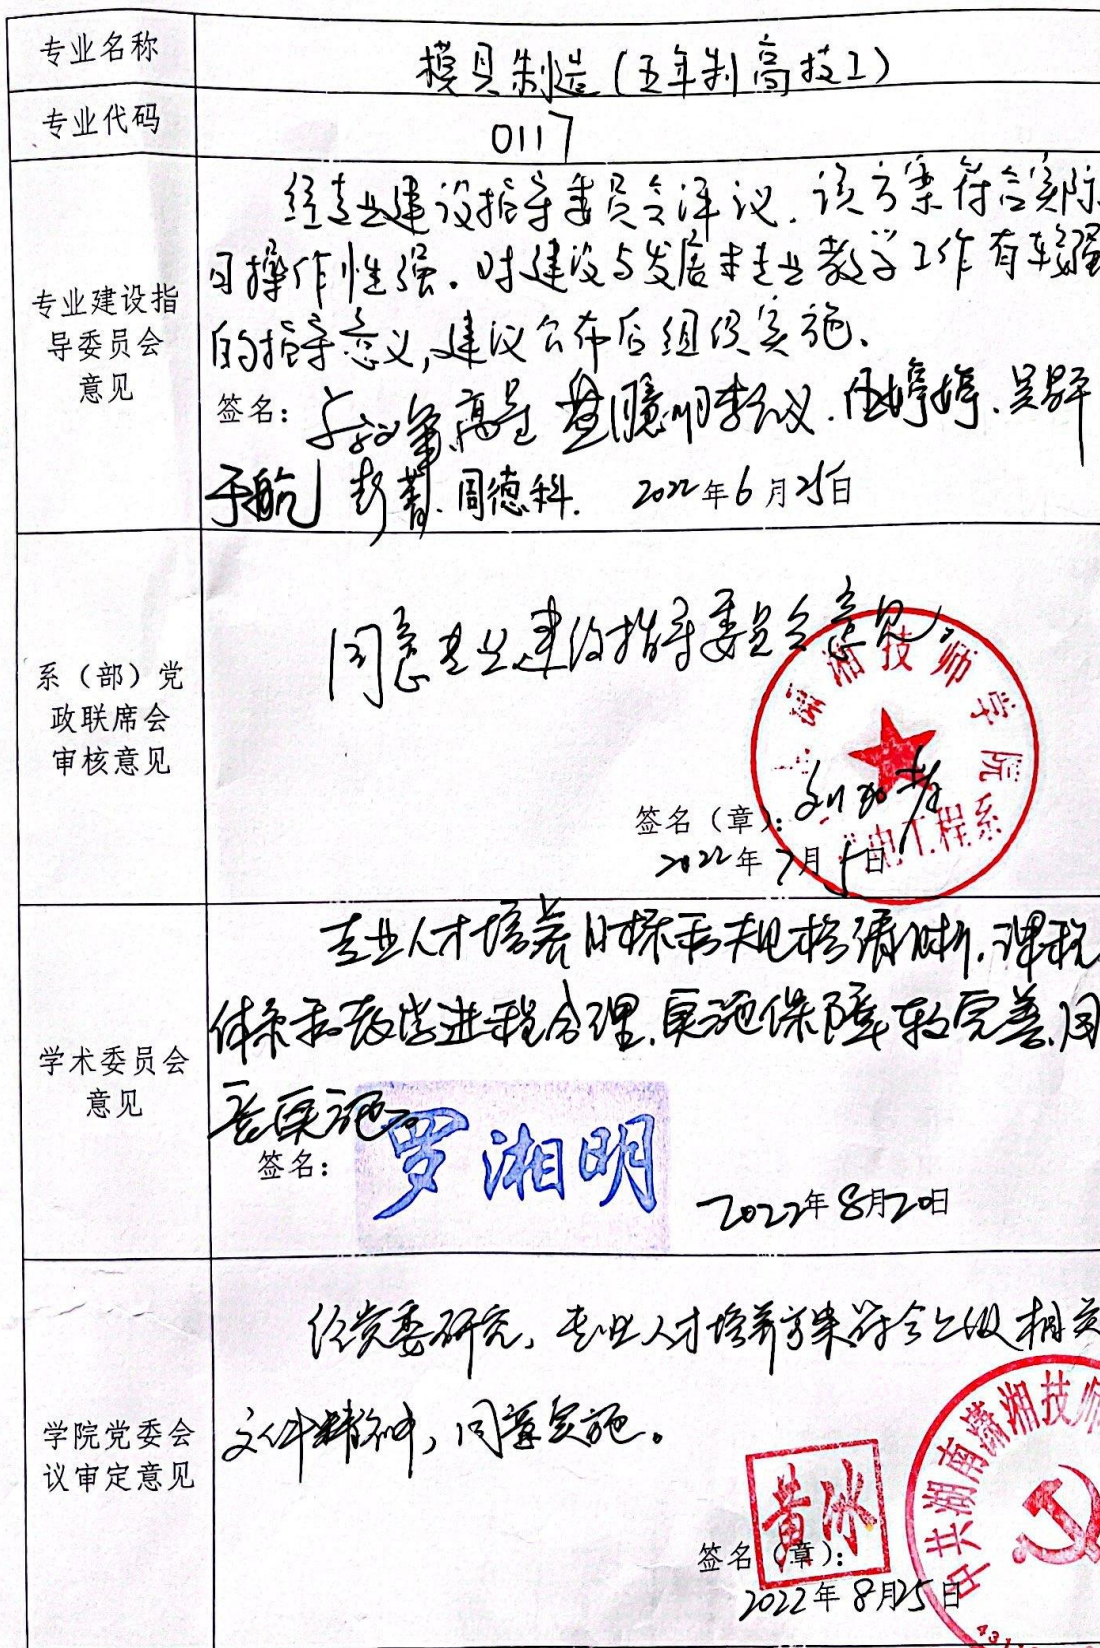 专业名称
模具制造(五年制高技工)
专业代码
0117
专业建设指
导委员会
意见
经专业建设指导委员会评议.该方案符合实际
可操作性强。对建设与发展本专业教学工作有较强
的指导意义,建议公布后组织实施.
签名:
于航 彭菁.周德科. 2022年6月25日
系(部)党
政联席会
审核意见
同意专业建设指导委员会意见.
潇湘技师学院
工程系
签名(章):
2022年7月1日
学术委员会
意见
专业人才培养目标和规格清晰.课程
体系和教学进程合理.实施保障较完善.同
意实施。
签名:
罗湘明
2022年8月20日
学院党委会
议审定意见
经党委研究,专业人才培养方案符合上级相关
文件精神,同意实施。
中共湖南潇湘技师
黄冰
签名(章):
2022年8月25日